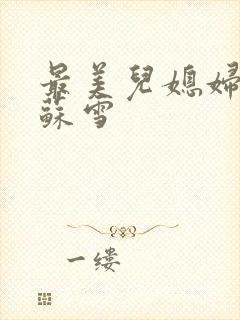 最美兒媳婦
蘇雪
一缕